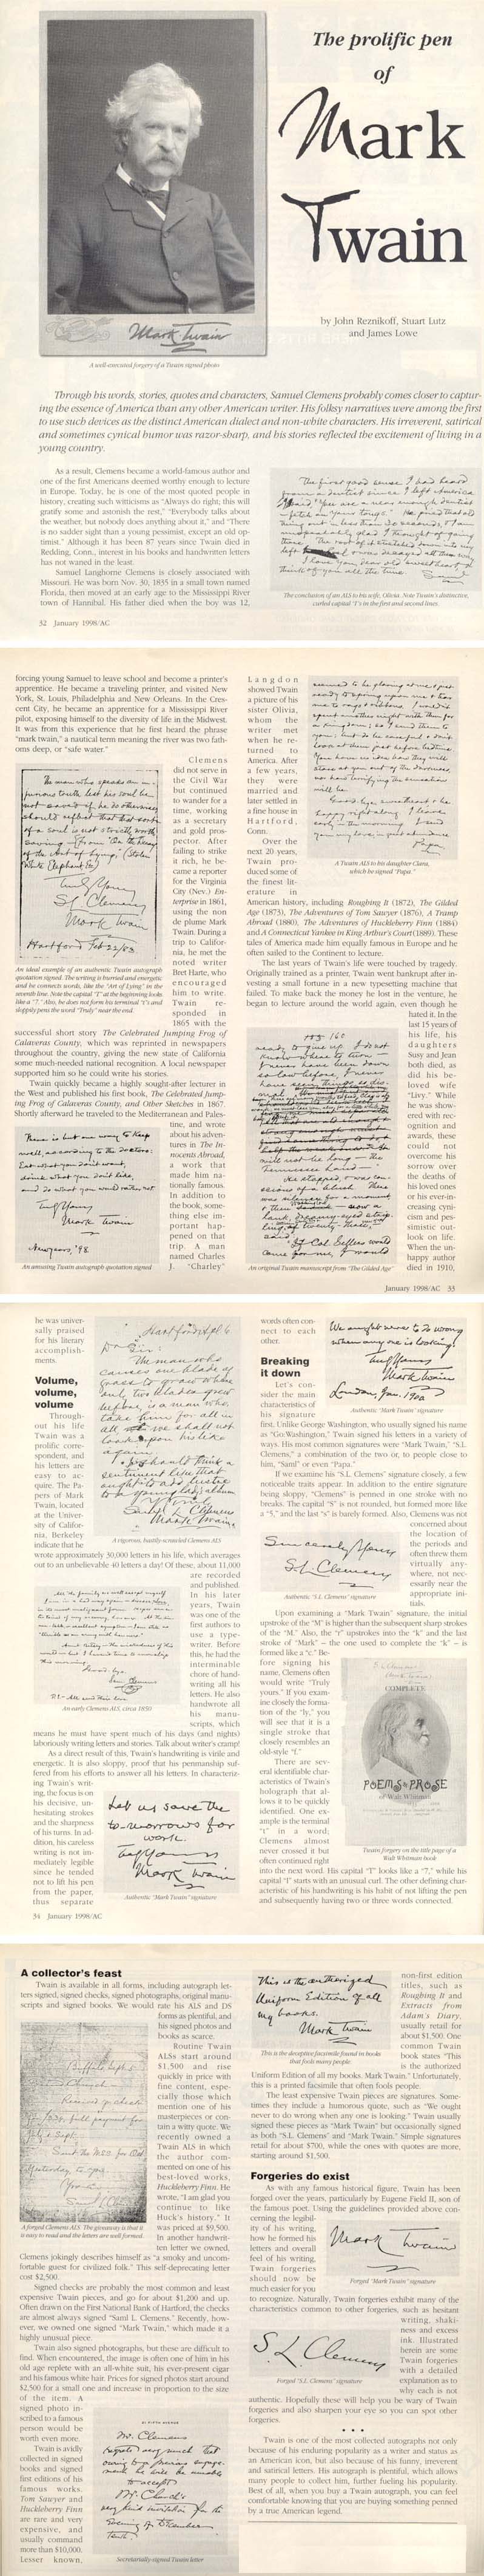 The prolific pen
of
Mark
Twain
by John Reznikoff, Stuart Lutz
and James Lowe
Mark Twain
A well-executed forgery of a Twain signed photo
Through his words, stories, quotes and characters, Samuel Clemens probably comes closer to captur-
ing the essence of America than any other American writer. His folksy narratives were among the first
to use such devices as the distinct American dialect and non-white characters. His irreverent, satirical
and sometimes cynical humor was razor-sharp, and his stories reflected the excitement of living in a
young country.
As a result, Clemens became a world-famous author and
one of the first Americans deemed worthy enough to lecture
in Europe. Today, he is one of the most quoted people in
history, creating such witticisms as "Always do right; this will
gratify some and astonish the rest," "Everybody talks about
the weather, but nobody does anything about it," and "There
is no sadder sight than a young pessimist, except an old op-
timist." Although it has been 87 years since Twain died in
Redding, Conn., interest in his books and handwritten letters
has not waned in the least.
Samuel Langhorne Clemens is closely associated with
Missouri. He was born Nov. 30, 1835 in a small town named
Florida, then moved at an early age to the Mississippi River
town of Hannibal. His father died when the boy was 12,
The conclusion of an ALS to his wife, Olivia. Note Twain's distinctive,
curled capital "I's in the first and second lines.
32 January 1998/AC
forcing young Samuel to leave school and become a printer's
apprentice. He became a traveling printer, and visited New
York, St. Louis, Philadelphia and New Orleans. In the Cres-
cent City, he became an apprentice for a Mississippi River
pilot, exposing himself to the diversity of life in the Midwest.
It was from this experience that he first heard the phrase
"mark twain," a nautical term meaning the river was two fath-
oms deep, or "safe water."
Clemens
did not serve in
the Civil War
but continued
to wander for a
time, working
as a secretary
and gold pros-
pector. After
failing to strike
it rich, he be-
came a reporter
for the Virginia
City (Nev.) En-
terprise in 1861,
using the non
de plume Mark
Twain. During a
trip to Califor-
nia, he met the
noted writer
Bret Harte, who
encouraged
him to write.
Twain re-
sponded in
1865 with the
An ideal example of an authentic Twain autograph
quotation signed. The writing is hurried and energetic,
and he connects words, like the "Art of Lying" in the
seventh line. Note the capital "T" at the beginning looks
like a "7." Also, he does not form his terminal "t's and
sloppily pens the word "Truly" near the end.
successful short story The Celebrated Jumping Frog of
Calaveras County, which was reprinted in newspapers
throughout the country, giving the new state of California
some much-needed national recognition. A local newspaper
supported him so he could write his stories.
Twain quickly became a highly sought-after lecturer in
the West and published his first book, The Celebrated Jump-
ing Frog of Calaveras County, and Other Sketches in 1867.
Shortly afterward he traveled to the Mediterranean and Pales-
tine, and wrote
about his adven-
tures in The In-
nocents Abroad,
a work that
made him na-
tionally famous.
In addition to
the book, some-
thing else im-
portant hap-
pened on that
trip. A man
named Charles
J. "Charley"
An amusing Twain autograph quotation signed
Langdon
showed Twain
a picture of his
sister Olivia,
whom the
writer met
when he re-
turned to
America. After
a few years,
they were
married and
later settled in
a fine house in
Hartford,
Conn.
Over the
next 20 years,
Twain pro-
duced some of
the finest lit-
erature in
A Twain ALS to his daughter Clara,
which he signed "Papa."
American history, including Roughing It (1872), The Gilded
Age (1873), The Adventures of Tom Sawyer (1876), A Tramp
Abroad (1880), The Adventures of Huckleberry Finn (1884)
and A Connecticut Yankee in King Arthur's Court (1889). These
tales of America made him equally famous in Europe and he
often sailed to the Continent to lecture.
The last years of Twain's life were touched by tragedy.
Originally trained as a printer, Twain went bankrupt after in-
vesting a small fortune in a new typesetting machine that
failed. To make back the money he lost in the venture, he
began to lecture around the world again, even though he
hated it. In the
last 15 years of
his life, his
daughters
Susy and Jean
both died, as
did his be-
loved wife
"Livy." While
he was show-
ered with rec-
ognition and
awards, these
could not
overcome his
sorrow over
the deaths of
his loved ones
or his ever-in-
creasing cyni-
cism and pes-
simistic out-
look on life.
When the un-
happy author
died in 1910,
An original Twain manuscript from "The Gilded Age"
January 1998/AC 33
he was univer-
sally praised
for his literary
accomplish-
ments.
Volume,
volume,
volume
Through-
out his life
Twain was a
prolific corre-
spondent, and
his letters are
easy to ac-
quire. The Pa-
pers of Mark
Twain, located
at the Univer-
sity of Califor-
nia, Berkeley
indicate that he
A vigorous, hastily scrawled Clemens ALS
wrote approximately 30,000 letters in his life, which averages
out to an unbelievable 40 letters a day! Of these, about 11,000
are recorded
and published.
In his later
years, Twain
was one of the
first authors to
use a type-
writer. Before
this, he had the
interminable
chore of hand-
writing all his
letters. He also
handwrote all
his manu-
scripts, which
An early Clemens ALS, circa 1850
means he must have spent much of his days (and nights)
laboriously writing letters and stories. Talk about writer's cramp!
As a direct result of this, Twain's handwriting is virile and
energetic. It is also sloppy, proof that his penmanship suf-
fered from his efforts to answer all his letters. In characteriz-
ing Twain's writ-
ing, the focus is on
his decisive, un-
hesitating strokes
and the sharpness
of his turns. In ad-
dition, his careless
writing is not im-
mediately legible
since he tended
not to lift his pen
from the paper,
thus separate
Let us save the
to-morrows for
work.
Truly Yours
Mark Twain
Authentic "Mark Twain" signature
34 January 1998/AC
words often con-
nect to each
other.
We ought never to do wrong
when any one is looking.
Truly Yours
Mark Twain
London, Jan. 1900
Authentic "Mark Twain" signature
Breaking
it down
Let's con-
sider the main
characteristics of
his signature
first. Unlike George Washington, who usually signed his name
as "Go.Washington," Twain signed his letters in a variety of
ways. His most common signatures were "Mark Twain," "S.L
Clemens," a combination of the two or, to people close to
him, "Saml" or even "Papa."
If we examine his "S.L Clemens" signature closely, a few
noticeable traits appear. In addition to the entire signature
being sloppy, "Clemens" is penned in one stroke with no
breaks. The capital "S" is not rounded, but formed more like
a "5," and the last "s" is barely formed. Also, Clemens was not
concerned about
the location of
the periods and
often threw them
virtually any-
where, not nec-
essarily near the
appropriate ini-
tials.
Sincerely Yours
S. L. Clemens
Authentic "S.L Clemens" signature
Upon examining a "Mark Twain" signature, the initial
upstroke of the "M" is higher than the subsequent sharp strokes
of the "M." Also, the "r" upstrokes into the "k" and the last
stroke of "Mark" – the one used to complete the "k" – is
formed like a "c." Be-
fore signing his
name, Clemens often
would write "Truly
yours." If you exam-
ine closely the forma-
tion of the "ly," you
will see that it is a
single stroke that
closely resembles an
old-style "f."
There are sev-
eral identifiable char-
acteristics of Twain's
holograph that al-
lows it to be quickly
identified. One ex-
ample is the terminal
"t" in a word;
Clemens almost
never crossed it but
often continued right
COMPLETE
POEMS & PROSE
of Walt Whitman
Twain forgery on the title page of a
Walt Whitman book
into the next word. His capital "T" looks like a "7," while his
capital "I" starts with an unusual curl. The other defining char-
acteristic of his handwriting is his habit of not lifting the pen
and subsequently having two or three words connected.
A collector's feast
Twain is available in all forms, including autograph let-
ters signed, signed checks, signed photographs, original manu-
scripts and signed books. We would rate his ALS and DS
forms as plentiful, and
his signed photos and
books as scarce.
Routine Twain
ALSs start around
$1,500 and rise
quickly in price with
fine content, espe-
cially those which
mention one of his
masterpieces or con-
tain a witty quote. We
recently owned a
Twain ALS in which
the author com-
mented on one of his
best-loved works,
Huckleberry Finn. He
wrote, "I am glad you
continue to like
Huck's history." It
was priced at $9,500.
In another handwrit-
ten letter we owned,
A forged Clemens ALS. The giveaway is that it
is easy to read and the letters are well formed.
Clemens jokingly describes himself as "a smoky and uncom-
fortable guest for civilized folk." This self-deprecating letter
cost $2,500.
Signed checks are probably the most common and least
expensive Twain pieces, and go for about $1,200 and up.
Often drawn on the First National Bank of Hartford, the checks
are almost always signed "Saml L. Clemens." Recently, how-
ever, we owned one signed "Mark Twain," which made it a
highly unusual piece.
Twain also signed photographs, but these are difficult to
find. When encountered, the image is often one of him in his
old age replete with an all-white suit, his ever-present cigar
and his famous white hair. Prices for signed photos start around
$2,500 for a small one and increase in proportion to the size
of the item. A
signed photo in-
scribed to a famous
person would be
worth even more.
Twain is avidly
collected in signed
books and signed
first editions of his
famous works.
Tom Sawyer and
Huckleberry Finn
are rare and very
expensive, and
usually command
more than $10,000.
Lesser known,
Secretarially-signed Twain letter
This is the authorized
Uniform Edition of all
my books.
Mark Twain
This is the deceptive facsimile found in books
that fools many people
non-first edition
titles, such as
Roughing It and
Extracts from
Adam's Diary,
usually retail for
about $1,500. One
common Twain
book states "This
is the authorized
Uniform Edition of all my books. Mark Twain." Unfortunately,
this is a printed facsimile that often fools people.
The least expensive Twain pieces are signatures. Some-
times they include a humorous quote, such as "We ought
never to do wrong when any one is looking." Twain usually
signed these pieces as "Mark Twain" but occasionally signed
as both "S.L. Clemens" and "Mark Twain." Simple signatures
retail for about $700, while the ones with quotes are more,
starting around $1,500.
Forgeries do exist
As with any famous historical figure, Twain has been
forged over the years, particularly by Eugene Field II, son of
the famous poet. Using the guidelines provided above con-
cerning the legibil-
ity of his writing,
how he formed his
letters and overall
feel of his writing,
Twain forgeries
should now be
much easier for you
Mark Twain
Forged "Mark Twain" signature
to recognize. Naturally, Twain forgeries exhibit many of the
characteristics common to other forgeries, such as hesitant
writing, shaki-
ness and excess
ink. Illustrated
herein are some
Twain forgeries
with a detailed
explanation as to
why each is not
S. L. Clemens
Forged "S.L Clemens" signature
authentic. Hopefully these will help you be wary of Twain
forgeries and also sharpen your eye so you can spot other
forgeries.
• • •
Twain is one of the most collected autographs not only
because of his enduring popularity as a writer and status as
an American icon, but also because of his funny, irreverent
and satirical letters. His autograph is plentiful, which allows
many people to collect him, further fueling his popularity.
Best of all, when you buy a Twain autograph, you can feel
comfortable knowing that you are buying something penned
by a true American legend.